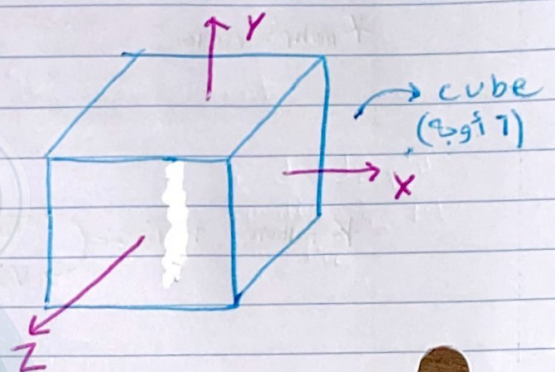 Y
cube
(٦ أوجه)
X
Z